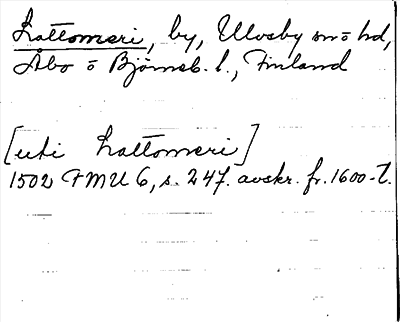 Lattomeri, by, Ulvsby sn o hd,
Åbo o Björneb. l., Finland
[uti Lattomeri]
1502 FMU 6, s. 247. avskr. fr. 1600-t.